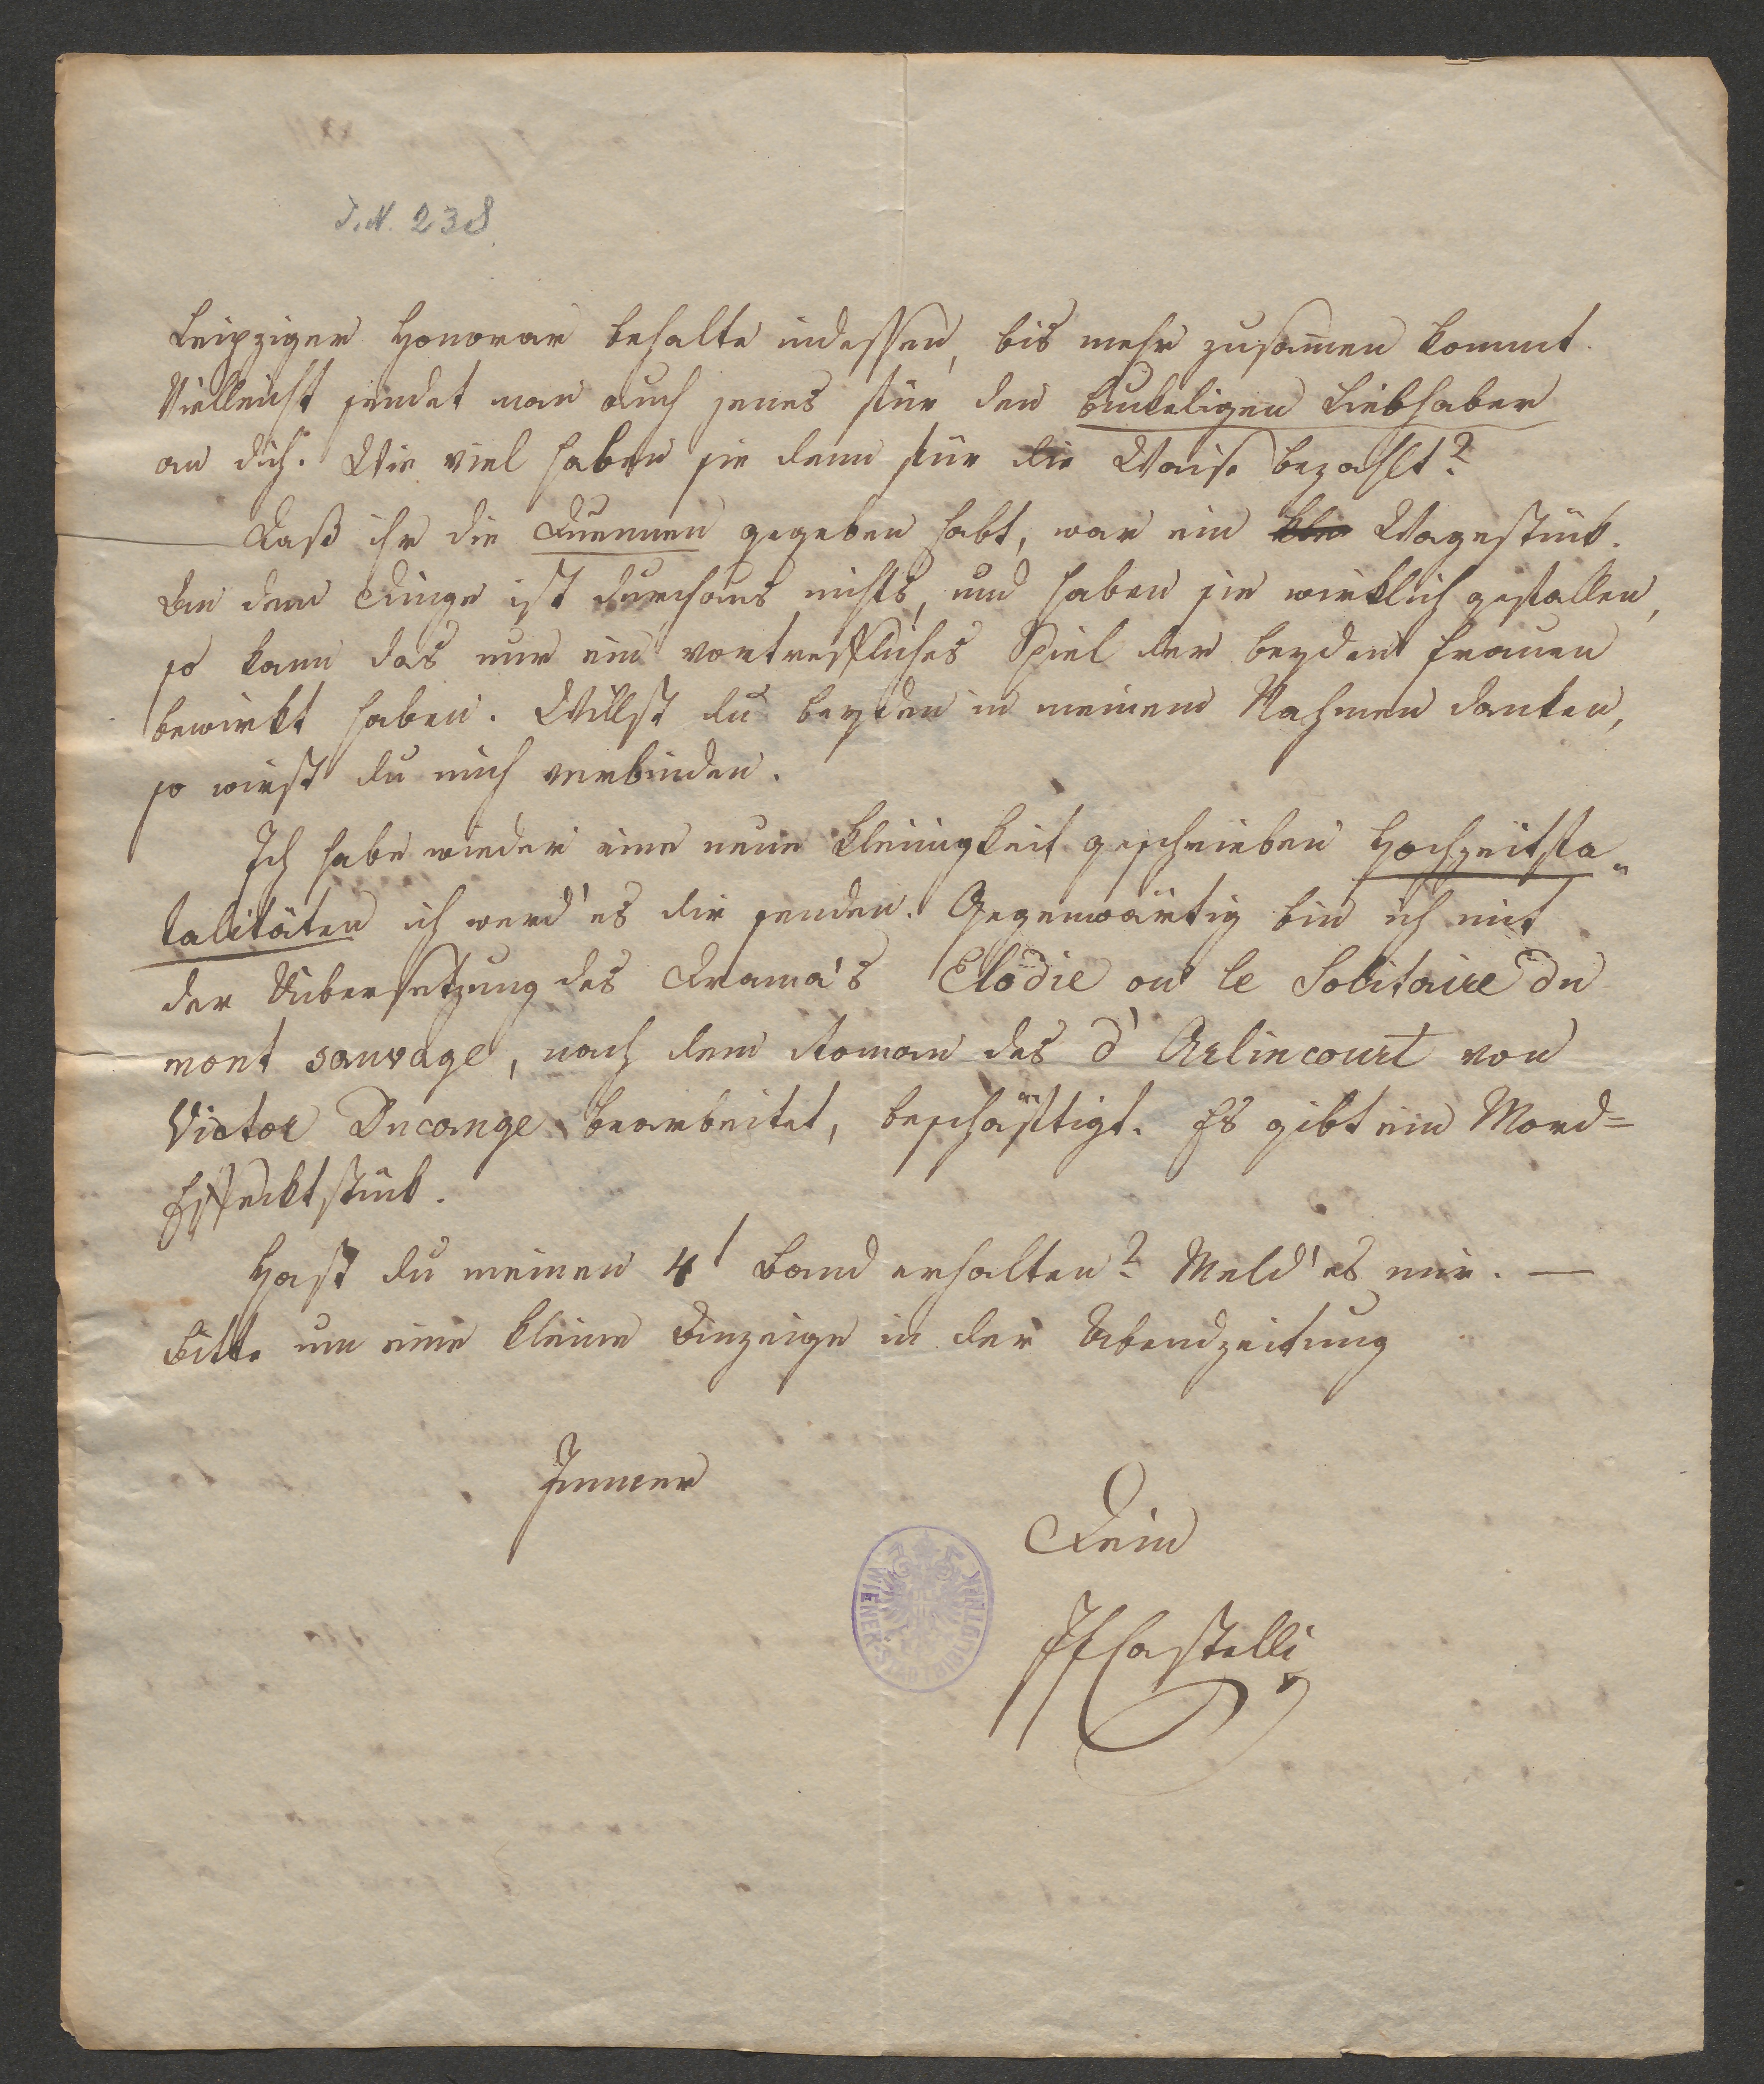 J.N. 238.
Leipziger Honorar behalte indessen, bis mehr zusam̅en kommt.
Vielleicht sendet man auch jenes für den buckeligen Liebhaber
an dich. Wie viel haben sie denn für die Waise bezahlt?
Daß ihr die Duennen gegeben habt, war ein Wagestück.
An dem Dinge ist durchaus nichts, und haben sie wirklich gefallen,
so kann das nur ein vortreffliches Spiel der beyden Frauen
bewirkt haben. Willst du beyden in meinem Nahmen danken,
so wirst du mich verbinden.
Ich habe wieder eine neue Kleinigkeit geschrieben Hochzeitsfa-
talitäten ich werd' es dir senden. Gegenwärtig bin ich mit
der Uibersetzung des Drama's Elodie ou le Solitaire du
mont sauvage, nach dem Roman des d'Arlincourt von
Victor Ducange bearbeitet, beschäftigt. Es gibt ein Mord=
Effecktstück.
Hast du meinen 4t Band erhalten? Meld' es mir. —
Bitte um eine kleine Anzeige in der Abendzeitung
Immer
Dein
JFCastelli
WIENER STADTBIBLIOTHEK